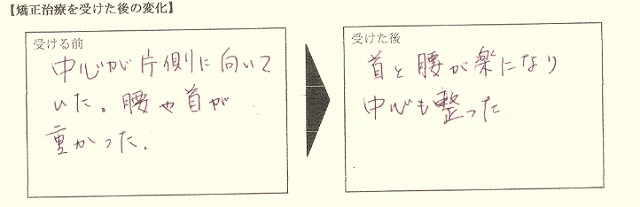 【矯正治療を受けた後の変化】
受ける前
中心が片側に向いて
いた。腰や首が
重かった。
受けた後
首と腰が楽になり
中心も整った